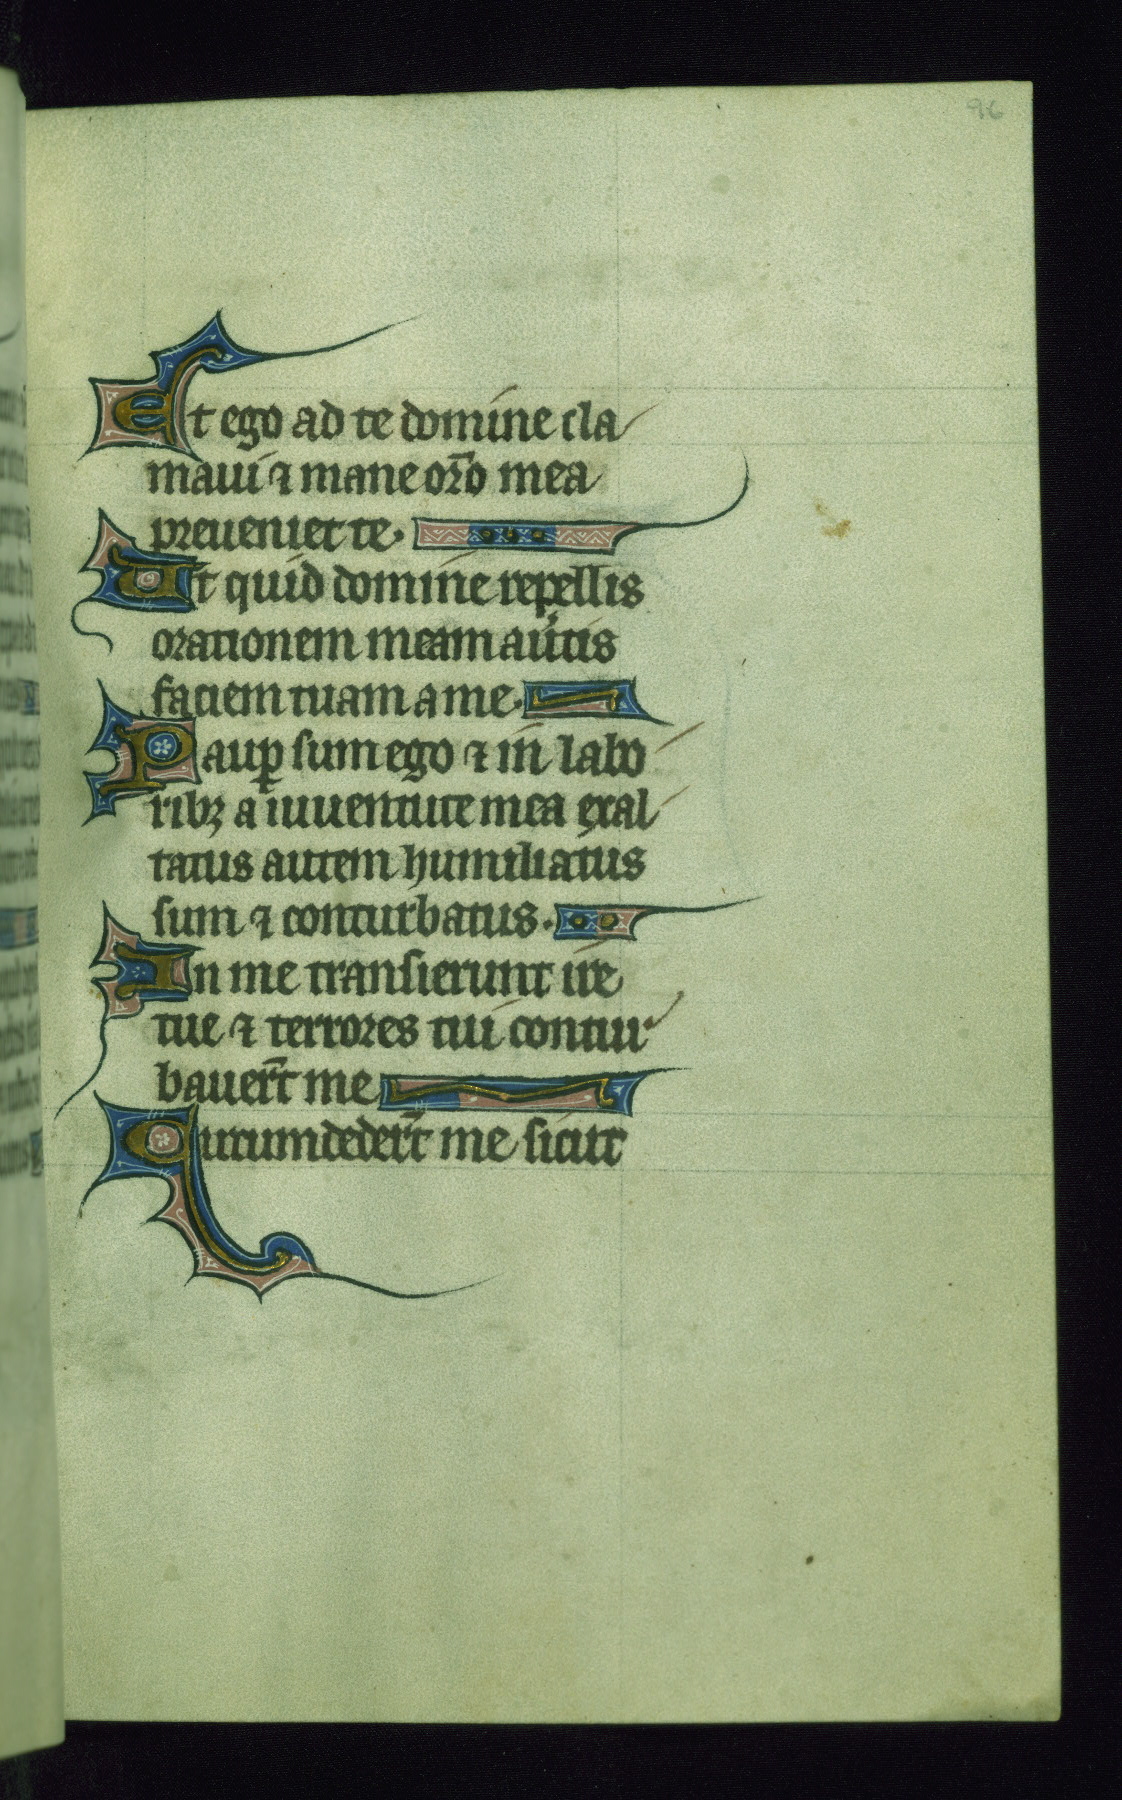 96
Et ego ad te domine cla
maui ⁊ mane or̄o mea
preueniet te.
Ut quid domine repellis
orationem meam au̾tis
faciem tuam a me.
Paup̱ sum ego ⁊ in labo
ribꝫ a iuuentute mea exal
tatus autem humiliatus
sum ⁊ conturbatus.
In me transierunt ire
tue ⁊ terrores tui contur
bauer̄t me
Circumdeder̄t me sicut